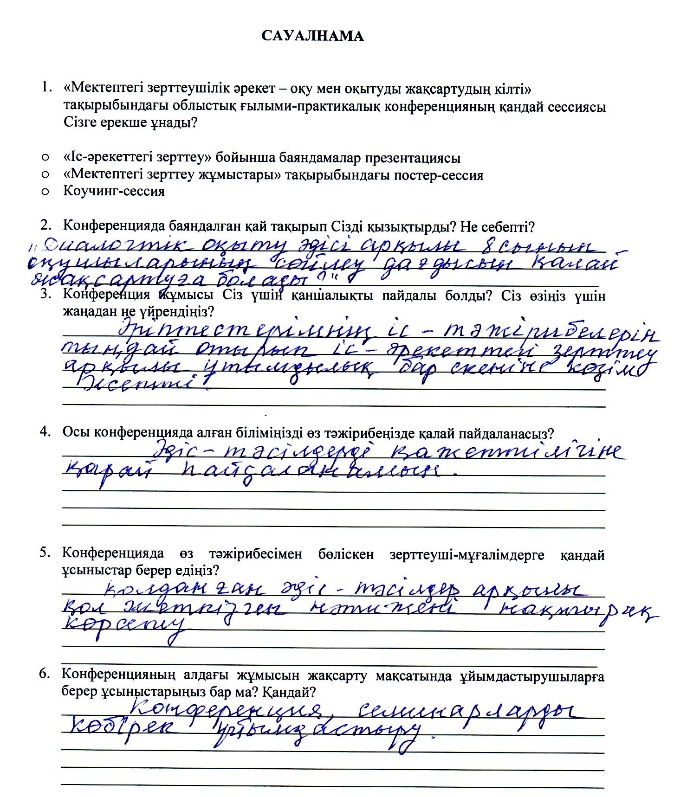 САУАЛНАМА
1. «Мектептегі зерттеушілік әрекет – оқу мен оқытуды жақсартудың кілті»
тақырыбындағы облыстық ғылыми-практикалық конференцияның қандай сессиясы
Сізге ерекше ұнады?
o «Іс-әрекеттегі зерттеу» бойынша баяндамалар презентациясы
o «Мектептегі зерттеу жұмыстары» тақырыбындағы постер-сессия
o Коучинг-сессия
2. Конференцияда баяндалған қай тақырып Сізді қызықтырды? Не себепті?
„Диалогтік оқыту әдісі арқылы 8 сынып
оқушыларының сөйлеу дағдысын қалай
жақсартуға болады?"
3. Конференция жұмысы Сіз үшін қаншалықты пайдалы болды? Сіз өзіңіз үшін
жаңадан не үйрендіңіз?
Әріптестерімнің іс-тәжірибелерін
тыңдай отырып іс-әрекеттегі зерттеу
арқылы ұтымдылық бар екеніне көзім
жетті.
4. Осы конференцияда алған біліміңізді өз тәжірибеңізде қалай пайдаланасыз?
Әдіс-тәсілдерді қажеттілігіне
қарай пайдаланамын.
5. Конференцияда өз тәжірибесімен бөліскен зерттеуші-мұғалімдерге қандай
ұсыныстар берер едіңіз?
Қолданған әдіс-тәсілдер арқылы
қол жеткізген нәтижені нақтырақ
көрсету
6. Конференцияның алдағы жұмысын жақсарту мақсатында ұйымдастырушыларға
берер ұсыныстарыңыз бар ма? Қандай?
Конференция, семинарларды
көбірек ұйымдастыру.